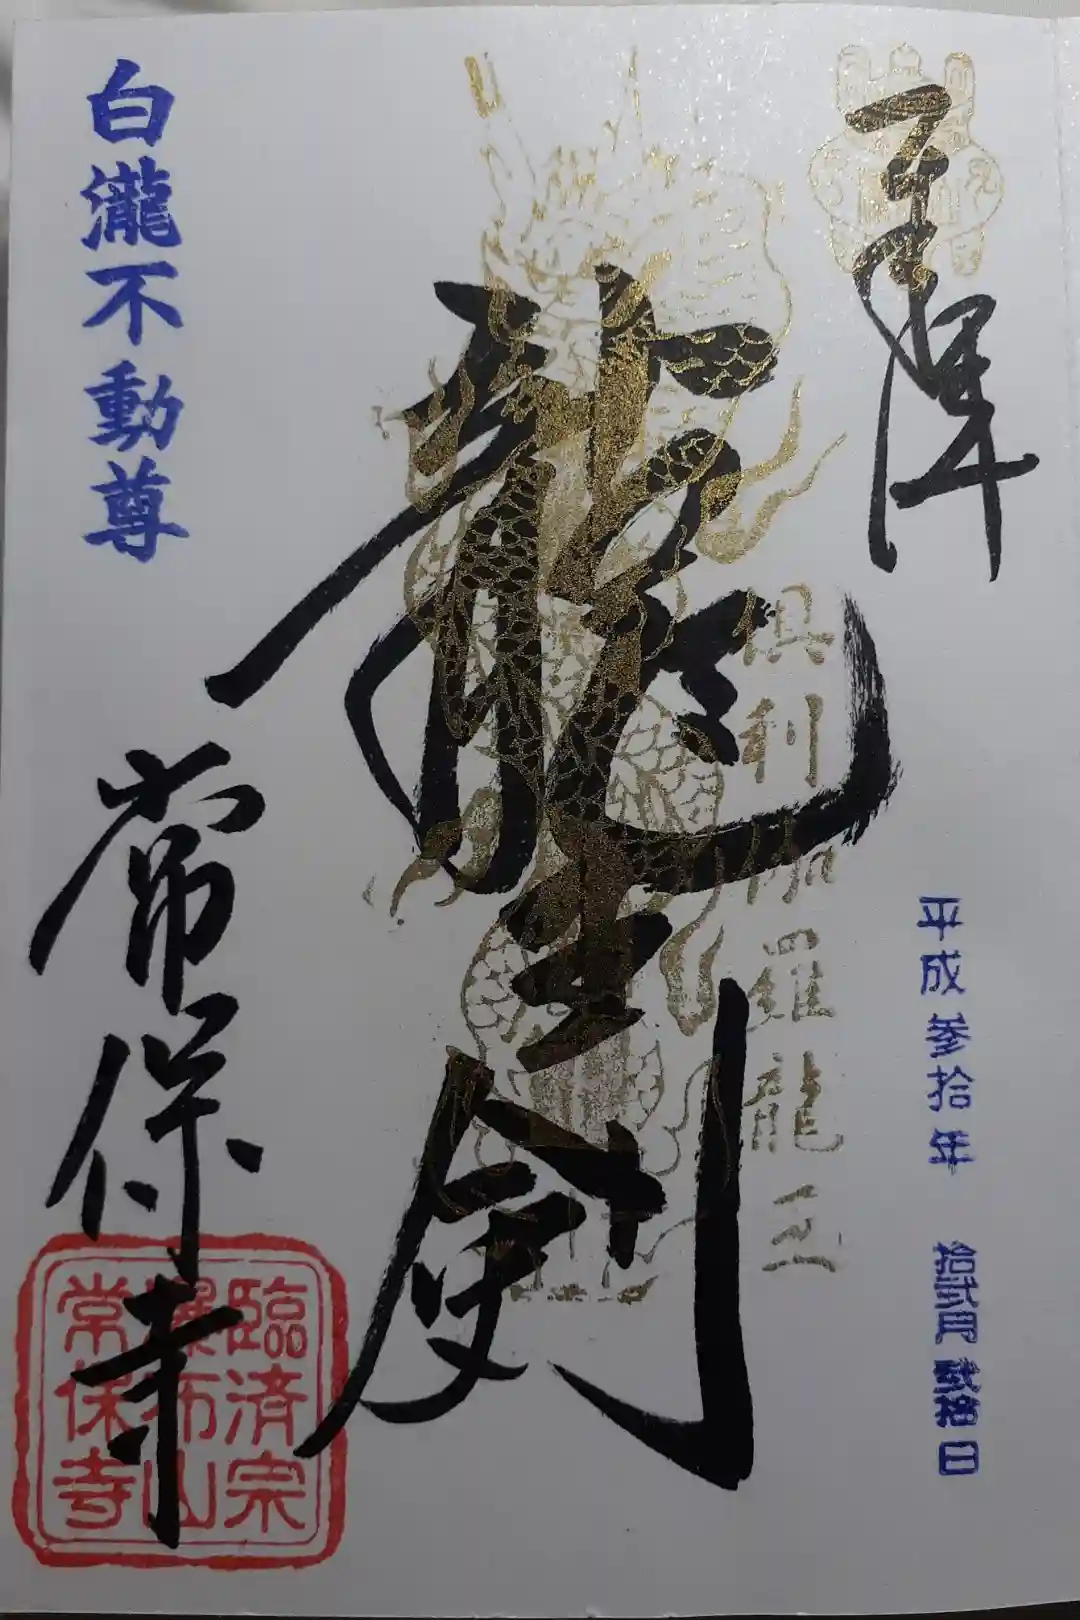 奉拝
平成参拾年 拾弐月 弐拾日
倶利伽羅龍王
龍王剣
白瀧不動尊
常保寺
臨済宗
瀑布山
常保寺